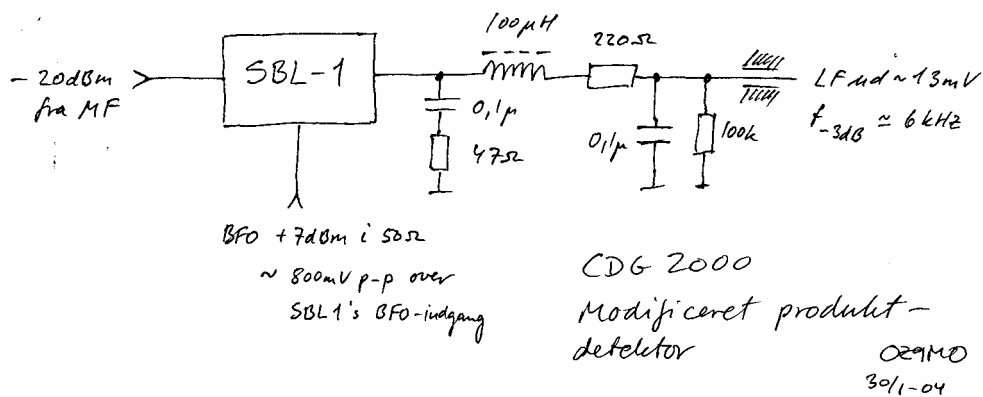 100µH
220Ω
- 20dBm
fra MF
SBL-1
0,1µ
47Ω
0,1µ
100k
LF ud ~ 13mV
f-3dB ≃ 6 kHz
BFO +7dBm i 50Ω
~ 800mV p-p over
SBL1's BFO-indgang
CDG 2000
Modificeret produkt-
detektor
OZ9MO
30/1-04